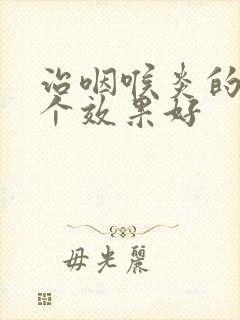 治咽喉炎的
个效果好
毋光麗